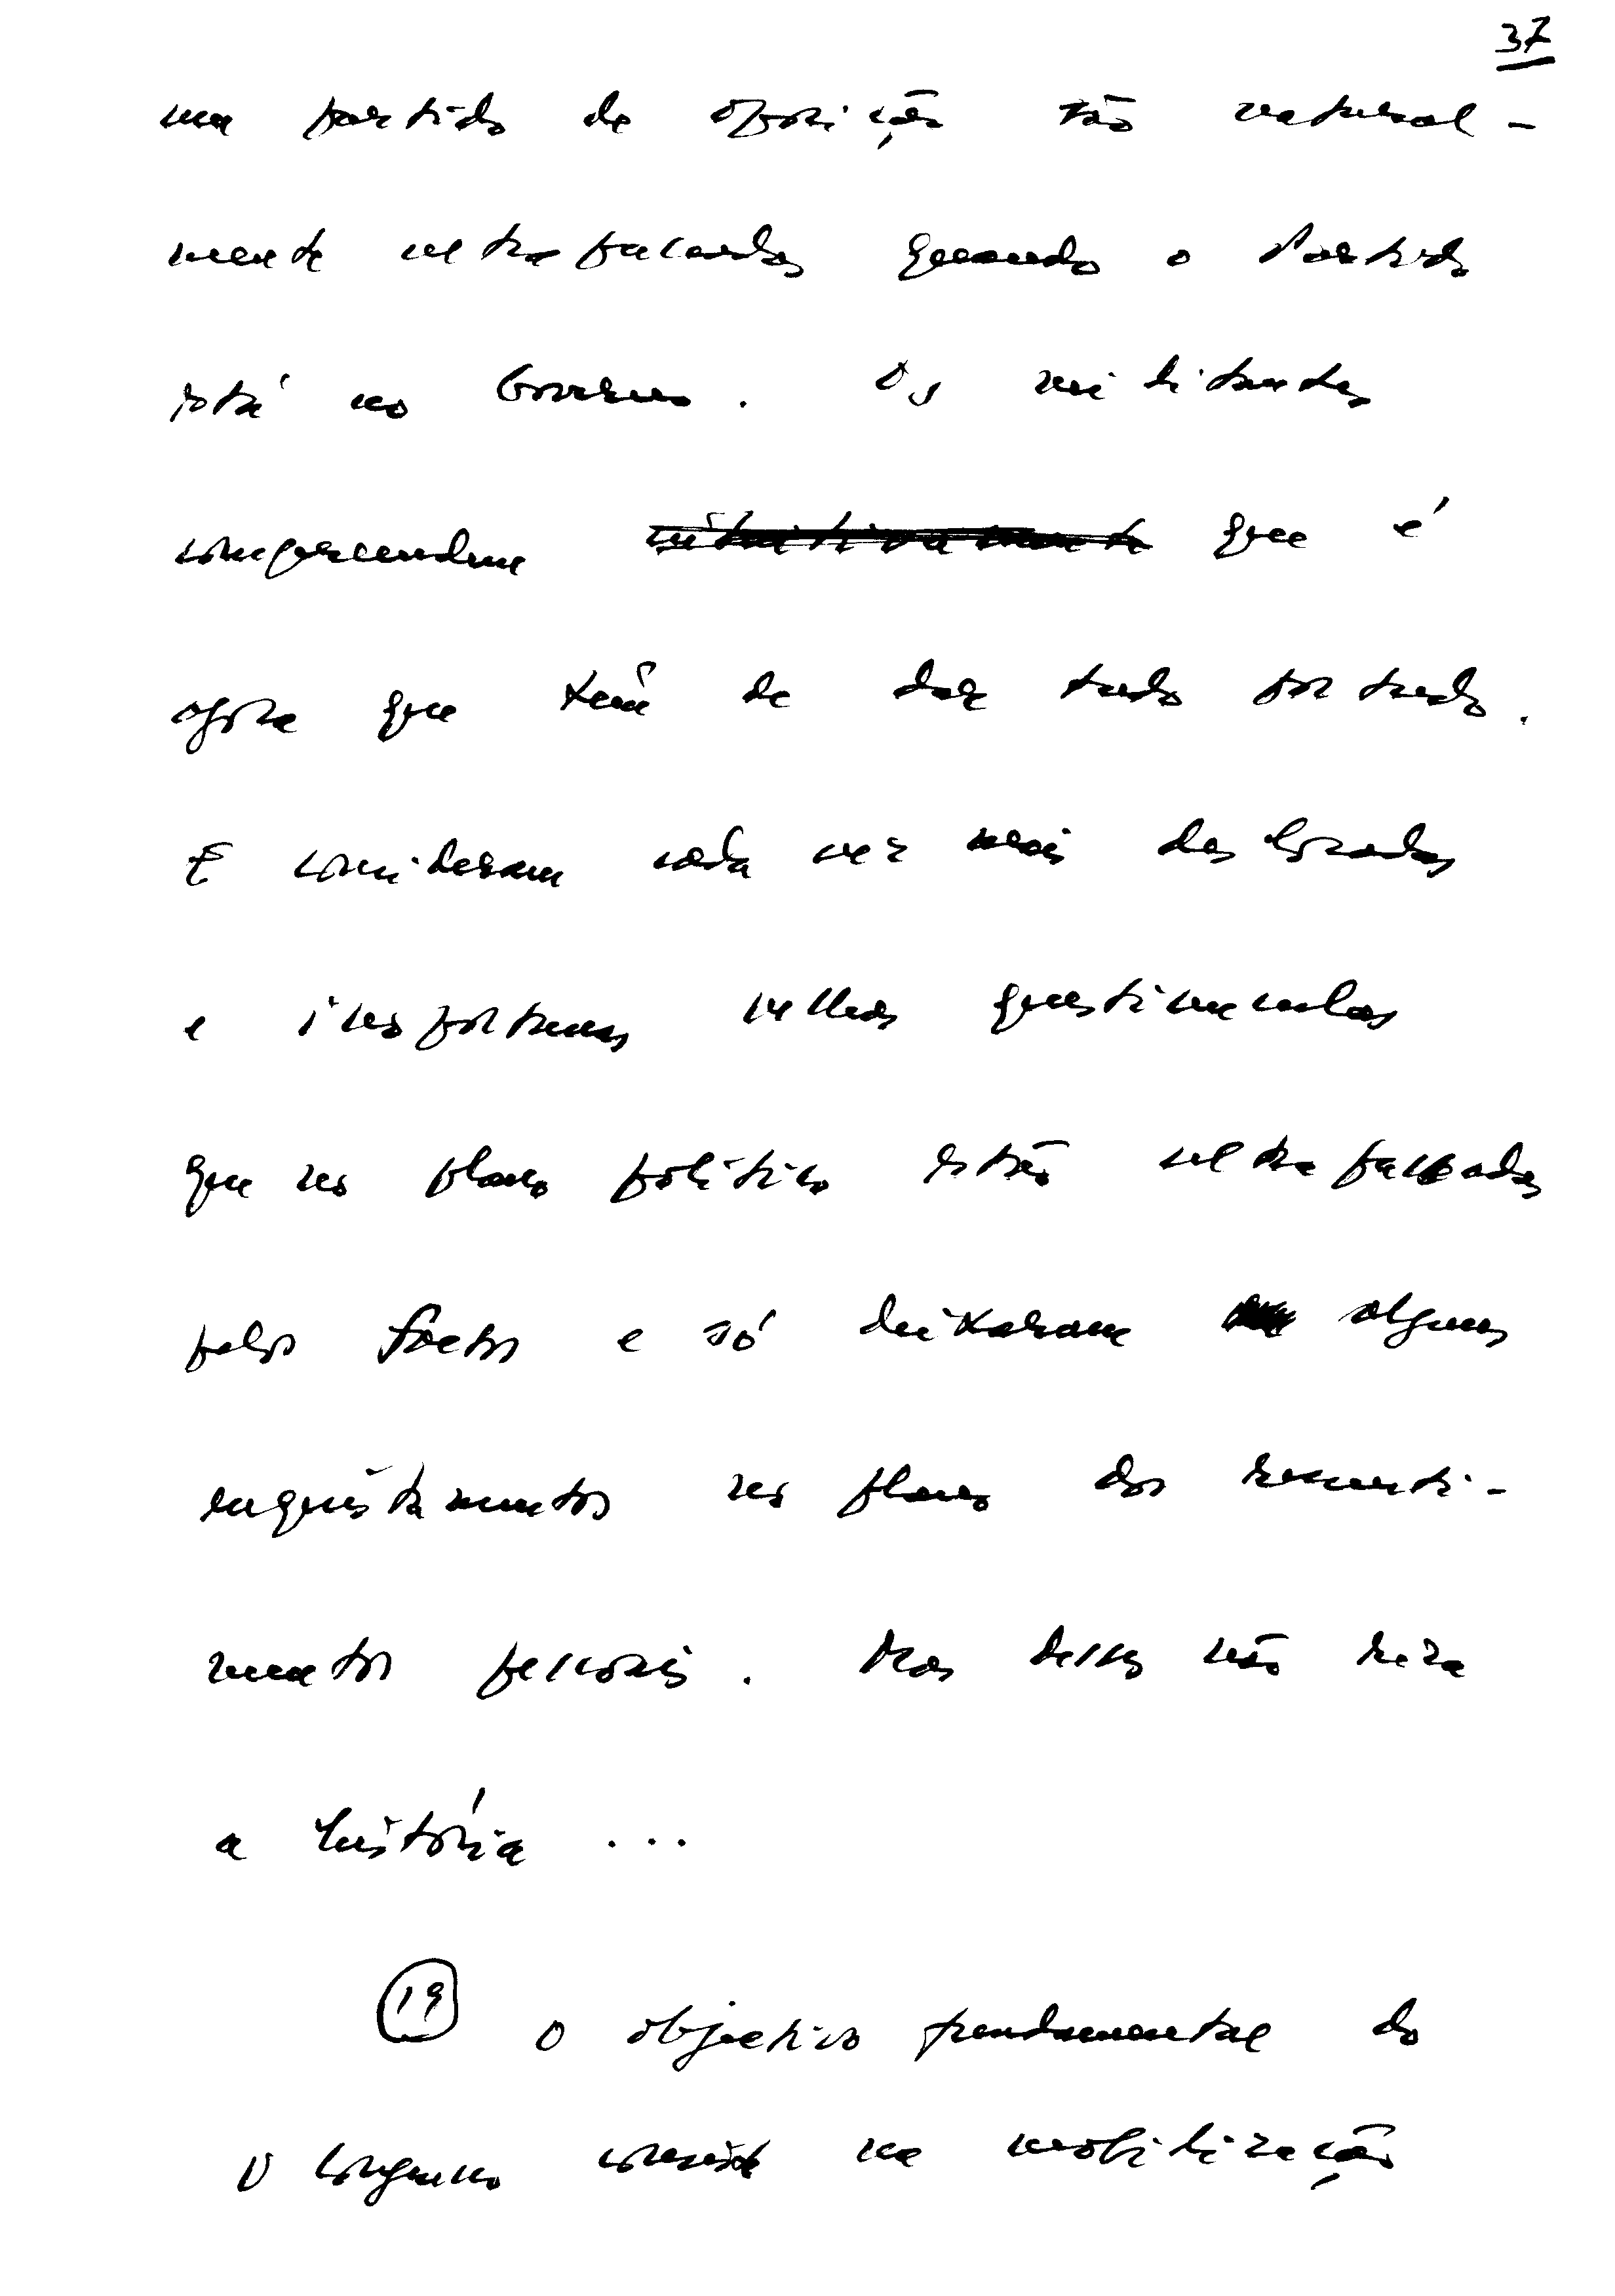 37
um partido de oposição são natural-
mente ultrapassadas quando o Partido
está no Governo. Os militantes
compreendem que é
agora que têm de dar tudo por tudo.
E consideram cada vez mais deslocadas
e inoportunas velhas questiúnculas
que no plano político estão ultrapassadas
pelos factos e só deixaram alguns
enquistamentos no plano dos ressenti-
mentos pessoais. Mas desses não reza
a história...
19 O objectivo fundamental do
V Congresso consiste na mobilização